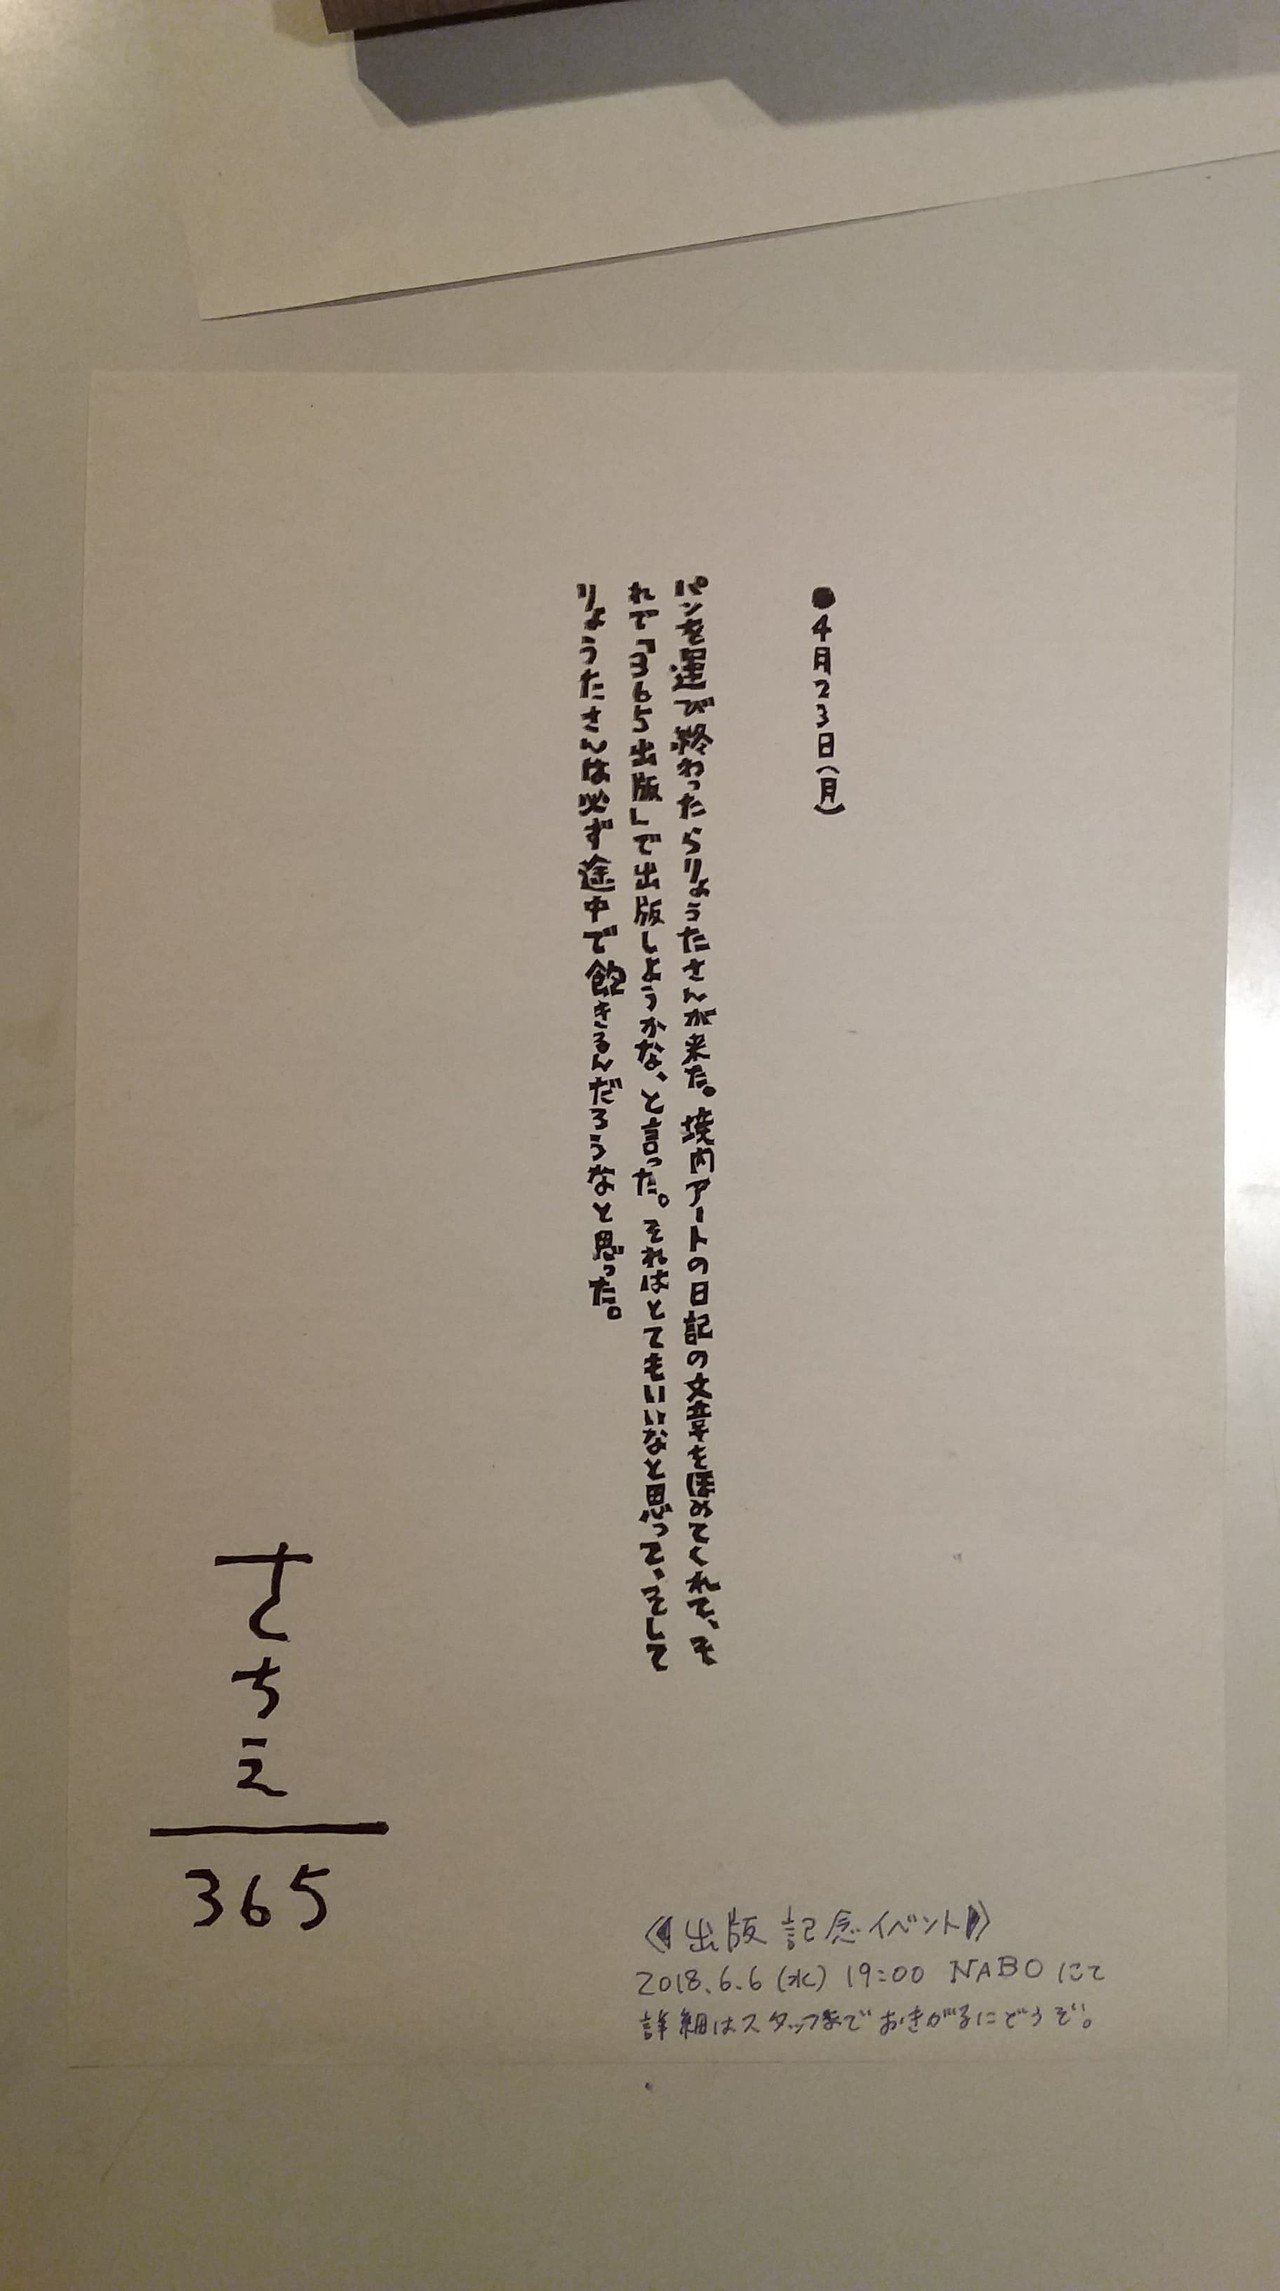 ●4月23日(月)
パンを運び終わったらりょうたさんが来た。境内アートの日記の文章をほめてくれて、そ
れで「365出版」で出版しようかな、と言った。それはとてもいいなと思って、そして
りょうたさんは必ず途中で飽きるんだろうなと思った。
さちえ
365
《出版記念イベント》
2018.6.6(水) 19:00 NABOにて
詳細はスタッフまでおきがるにどうぞ。